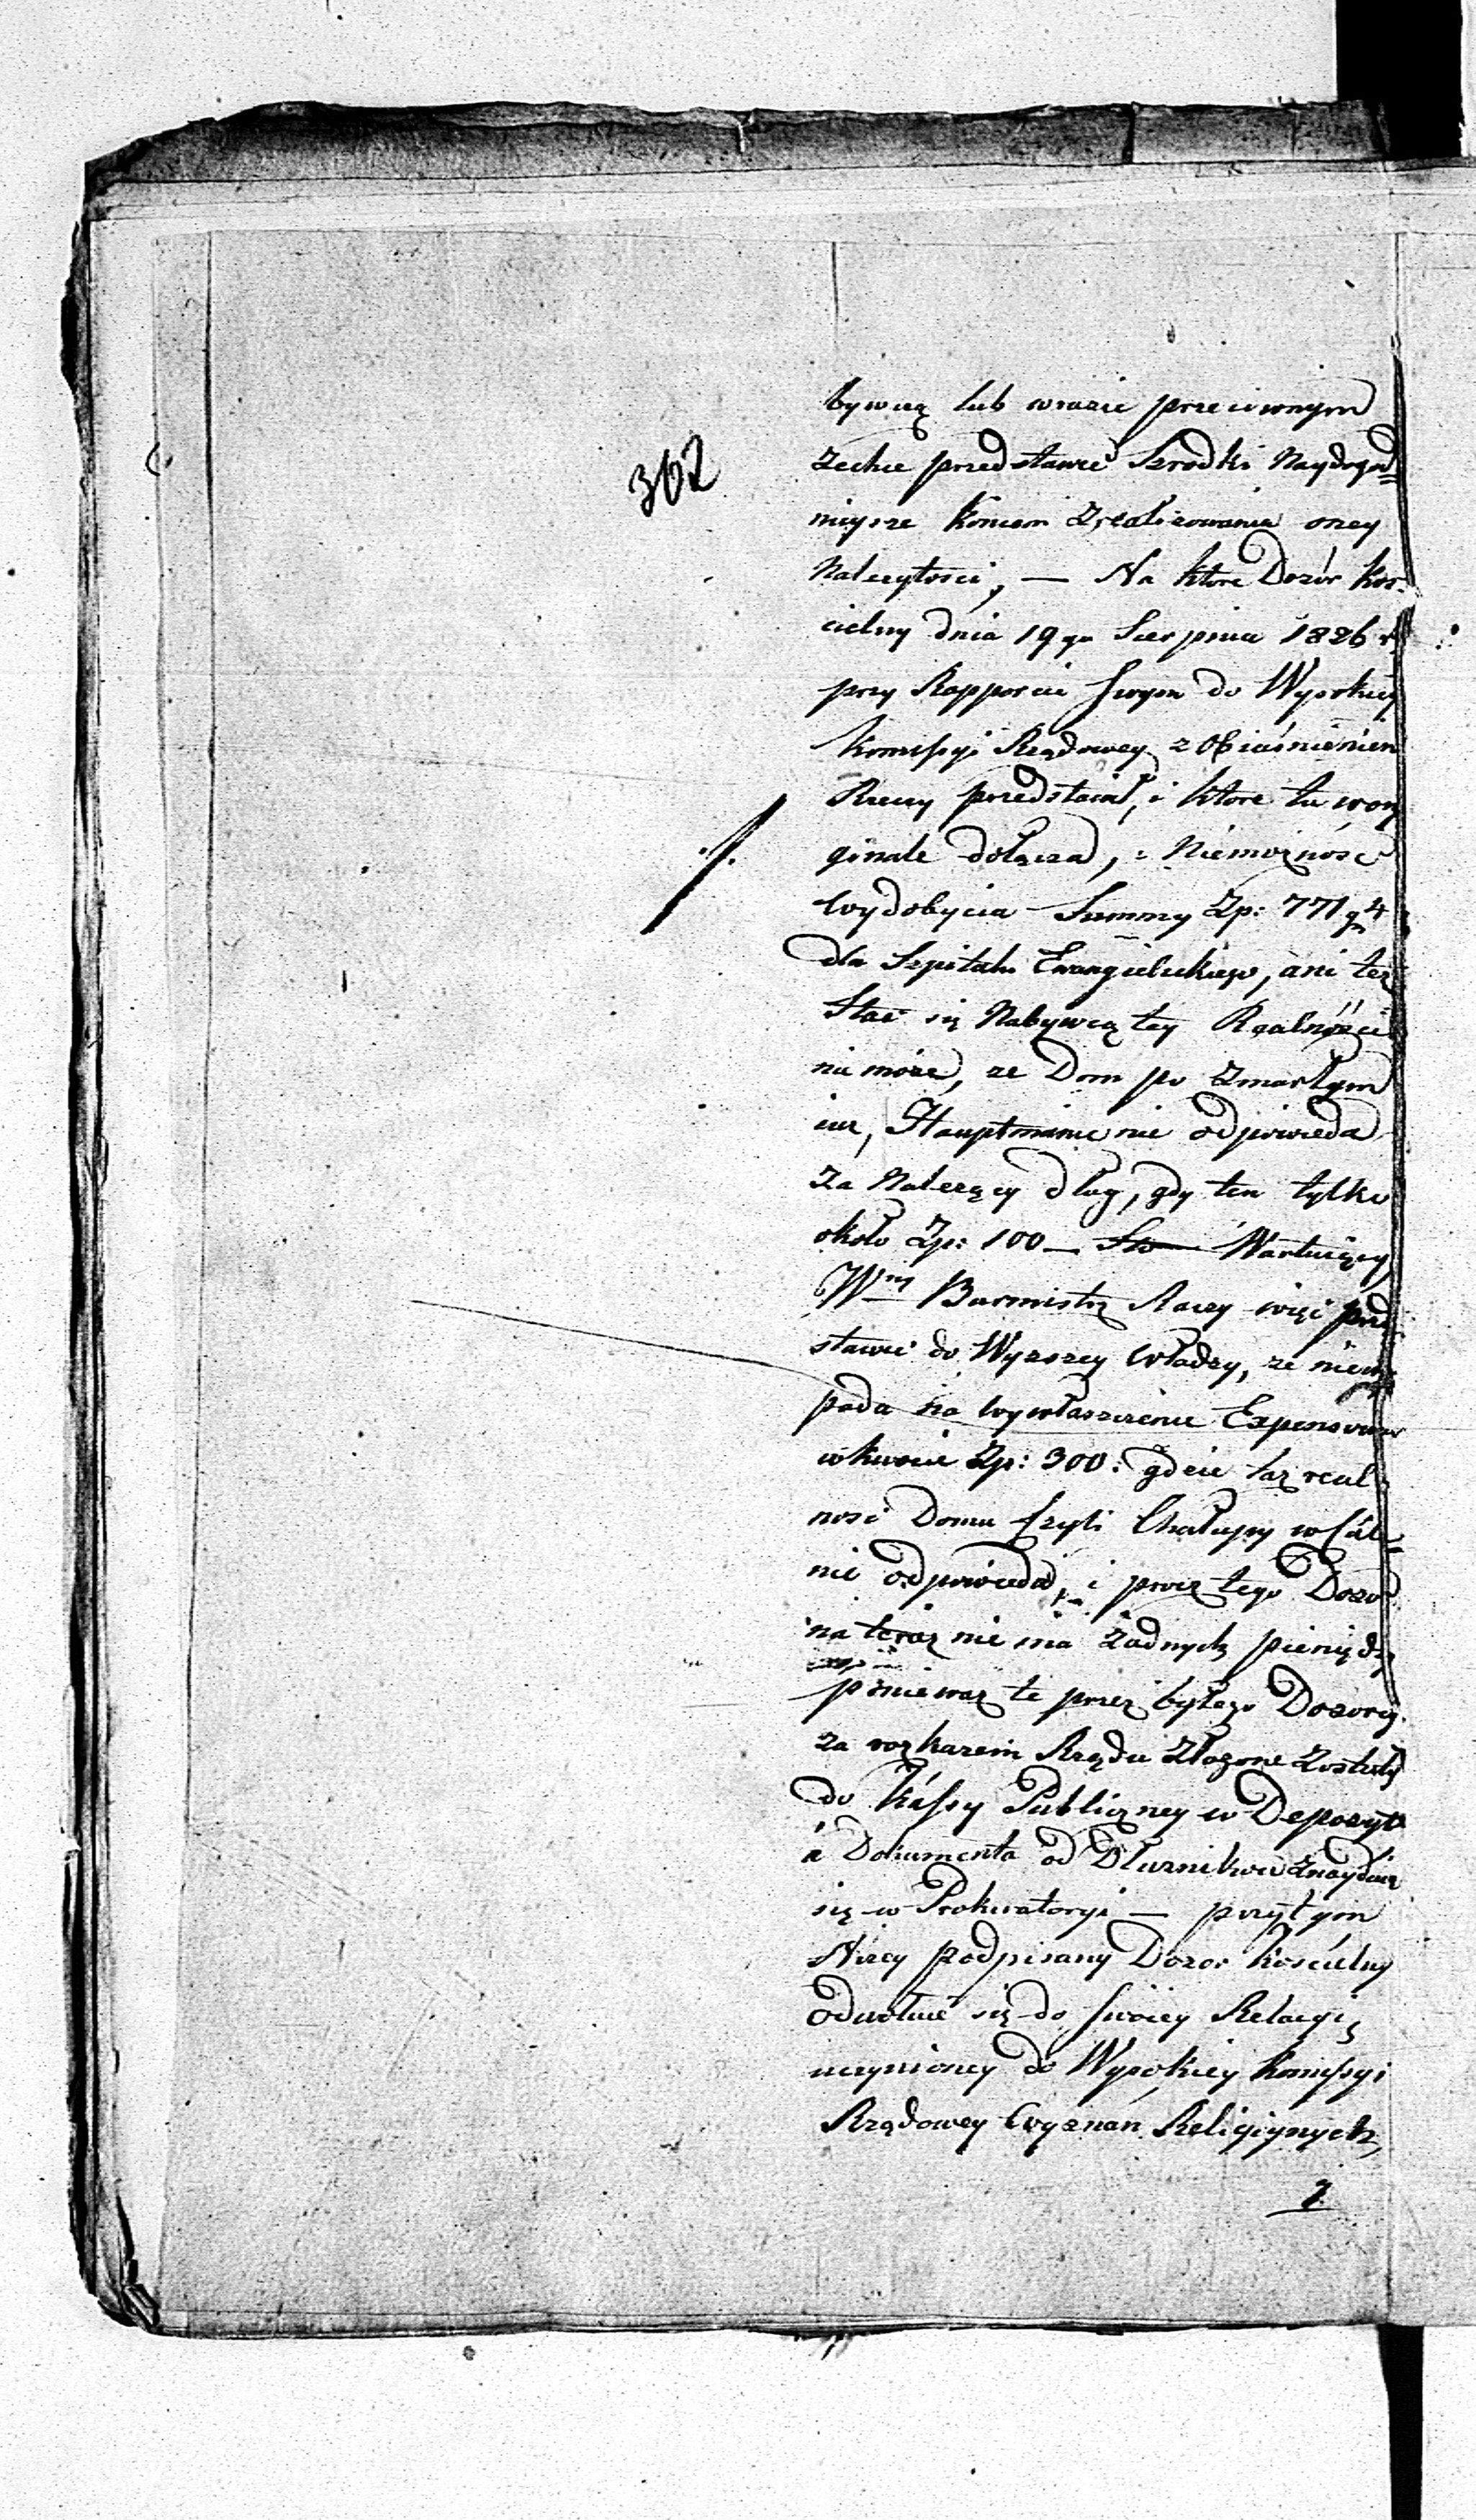 302
bywcą lub wrazie przeciwnym
zechce przedstawić Srzodki Naydogod=
nieysze koncem Zrealizowania oney
Należytości, — Na ktore Dozór Koś-
cielny dnia 19 go Sierpnia 1826 r.
przy Rapporcie Swym do Wysokiey
Komissyi Rządowey z Obiaśnieniem
Rzeczy przedstawił, i ktore tu wory
ginale dołącza, : Niemożność
Wydobycia Summy Zp: 771 g 4
dla Szpitalu Ewangielickiego, ani też
Stać się Nabywcą tey Realności
nie może, ze Dom po Zmarłym
iuz, Hauptmanie nie odpowieda
za Należący dług, gdy ten tylko
około Zp: 100 — Wartuiący
W Burmistrz Raczy więc prze
stawić do Wyzszey Władzy, ze nie
pada na wywłaszczenie Expensować
wkwocie Zp: 300: gdzie taż real=
ność Domu Czyli Chałupy w Cále=
nie odpowieda, i procz tego Dozor
na teraz nie ma żadnych pieniędzy
poniewaz te przez byłego Dozorcy
za rozkazem Rządu Złożone Zostały
do Kássy Publiczney w Depozyt
á Dokumenta od Dłuznikow znayduią
się w Prokuratoryi — przytym
Nizey podpisany Dozor Koscielny
Odwołuie się do swoiey Relacyi,
uczynioney do Wysokiey Komissyi
Rządowey Wyznań Religiynych,